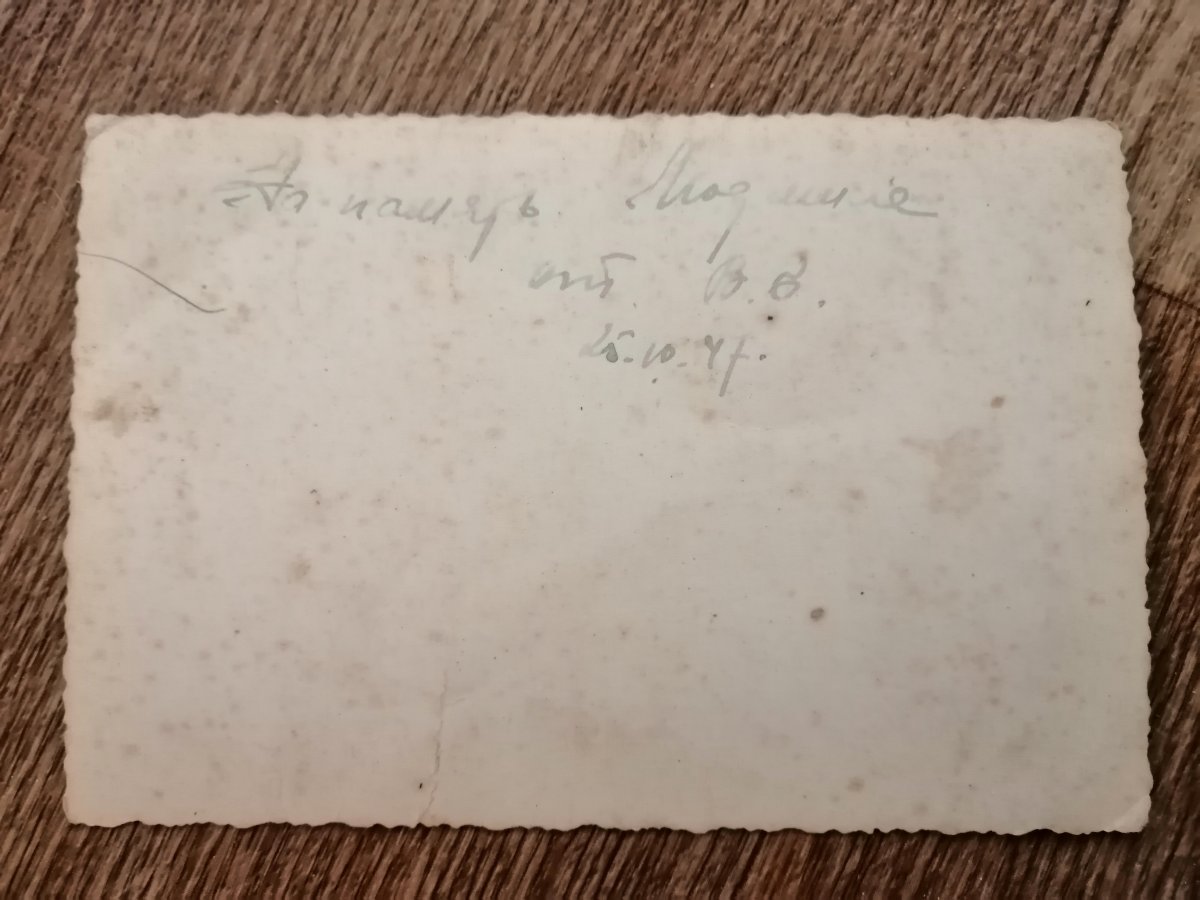 На память Людмиле
от В. В.
25.10.47.